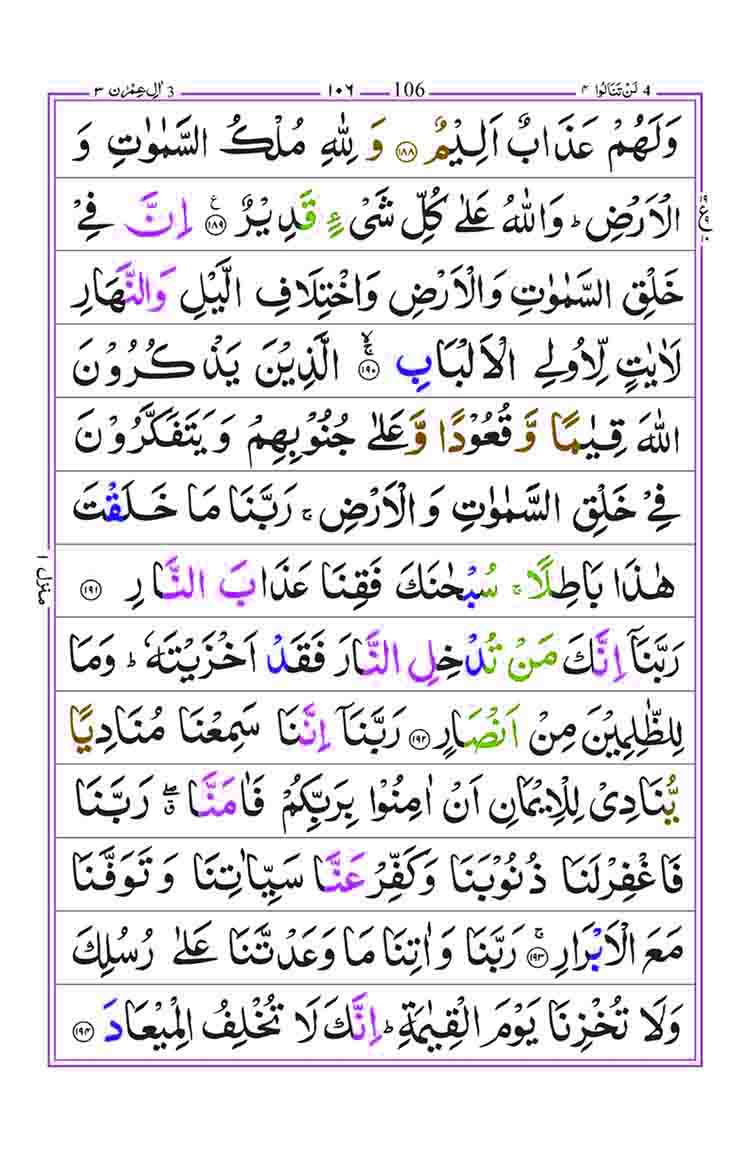 4 لَنْ تَنَالُوا ۴ 106 ١٠٦ 3 اٰلِ عِمْرٰن ۳
وَلَهُمْ عَذَابٌ اَلِيْمٌ ۝۱۸۸ وَ لِلّٰهِ مُلْكُ السَّمٰوٰتِ وَ
الْاَرْضِ ؕ وَاللّٰهُ عَلٰى كُلِّ شَیْءٍ قَدِيْرٌ ۝۱۸۹ اِنَّ فِیْ
خَلْقِ السَّمٰوٰتِ وَالْاَرْضِ وَاخْتِلَافِ الَّيْلِ وَالنَّهَارِ
لَاٰيٰتٍ لِّاُولِی الْاَلْبَابِ ۝۱۹۰ الَّذِيْنَ يَذْكُرُوْنَ
اللّٰهَ قِيٰمًا وَّ قُعُوْدًا وَّعَلٰى جُنُوْبِهِمْ وَيَتَفَكَّرُوْنَ
فِیْ خَلْقِ السَّمٰوٰتِ وَالْاَرْضِ ۚ رَبَّنَا مَا خَلَقْتَ
هٰذَا بَاطِلًا ۚ سُبْحٰنَكَ فَقِنَا عَذَابَ النَّارِ ۝۱۹۱
رَبَّنَاۤ اِنَّكَ مَنْ تُدْخِلِ النَّارَ فَقَدْ اَخْزَيْتَهٗ ؕ وَمَا
لِلظّٰلِمِيْنَ مِنْ اَنْصَارٍ ۝۱۹۲ رَبَّنَاۤ اِنَّنَا سَمِعْنَا مُنَادِيًا
يُّنَادِیْ لِلْاِيْمَانِ اَنْ اٰمِنُوْا بِرَبِّكُمْ فَاٰمَنَّا ۖۗ رَبَّنَا
فَاغْفِرْلَنَا ذُنُوْبَنَا وَكَفِّرْ عَنَّا سَيِّاٰتِنَا وَتَوَفَّنَا
مَعَ الْاَبْرَارِ ۝۱۹۳ رَبَّنَا وَاٰتِنَا مَا وَعَدْتَّنَا عَلٰى رُسُلِكَ
وَلَا تُخْزِنَا يَوْمَ الْقِيٰمَةِ ؕ اِنَّكَ لَا تُخْلِفُ الْمِيْعَادَ ۝۱۹۴
منزل ١